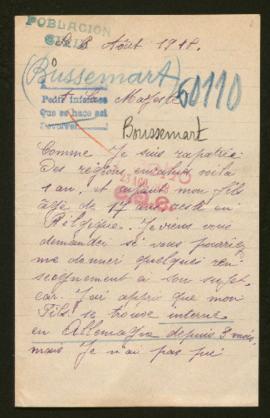 POBLACION
CIVIL
Le 8 Août 1918.
(Bussemart)
60110
Sa Majesté
Pedir informes
Que se hace así
Boussemart
Comme Je suis rapatrié
Des régions envahis voilà
1 an, et ayant mon fils
âgé de 17 ans resté en
Belgique. Je viens vous
demander si vous pourriez
me donner quelques ren-
seignement à son sujet
car J'ai appris que mon
Fils se trouve interné
en Allemagne depuis 8 mois,
mais Je n'ai pas pu